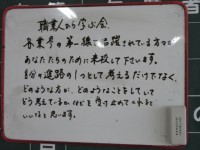 職業人から学ぶ会
各業界の第一線で活躍されている方々が
あなたたちのために来校して下さいます。
自分の進路の1つとして考えるだけでなく、
どのような方が、どのようなことをしていて
どう考えているかなどを受け止めてくれると
いいなと思います。